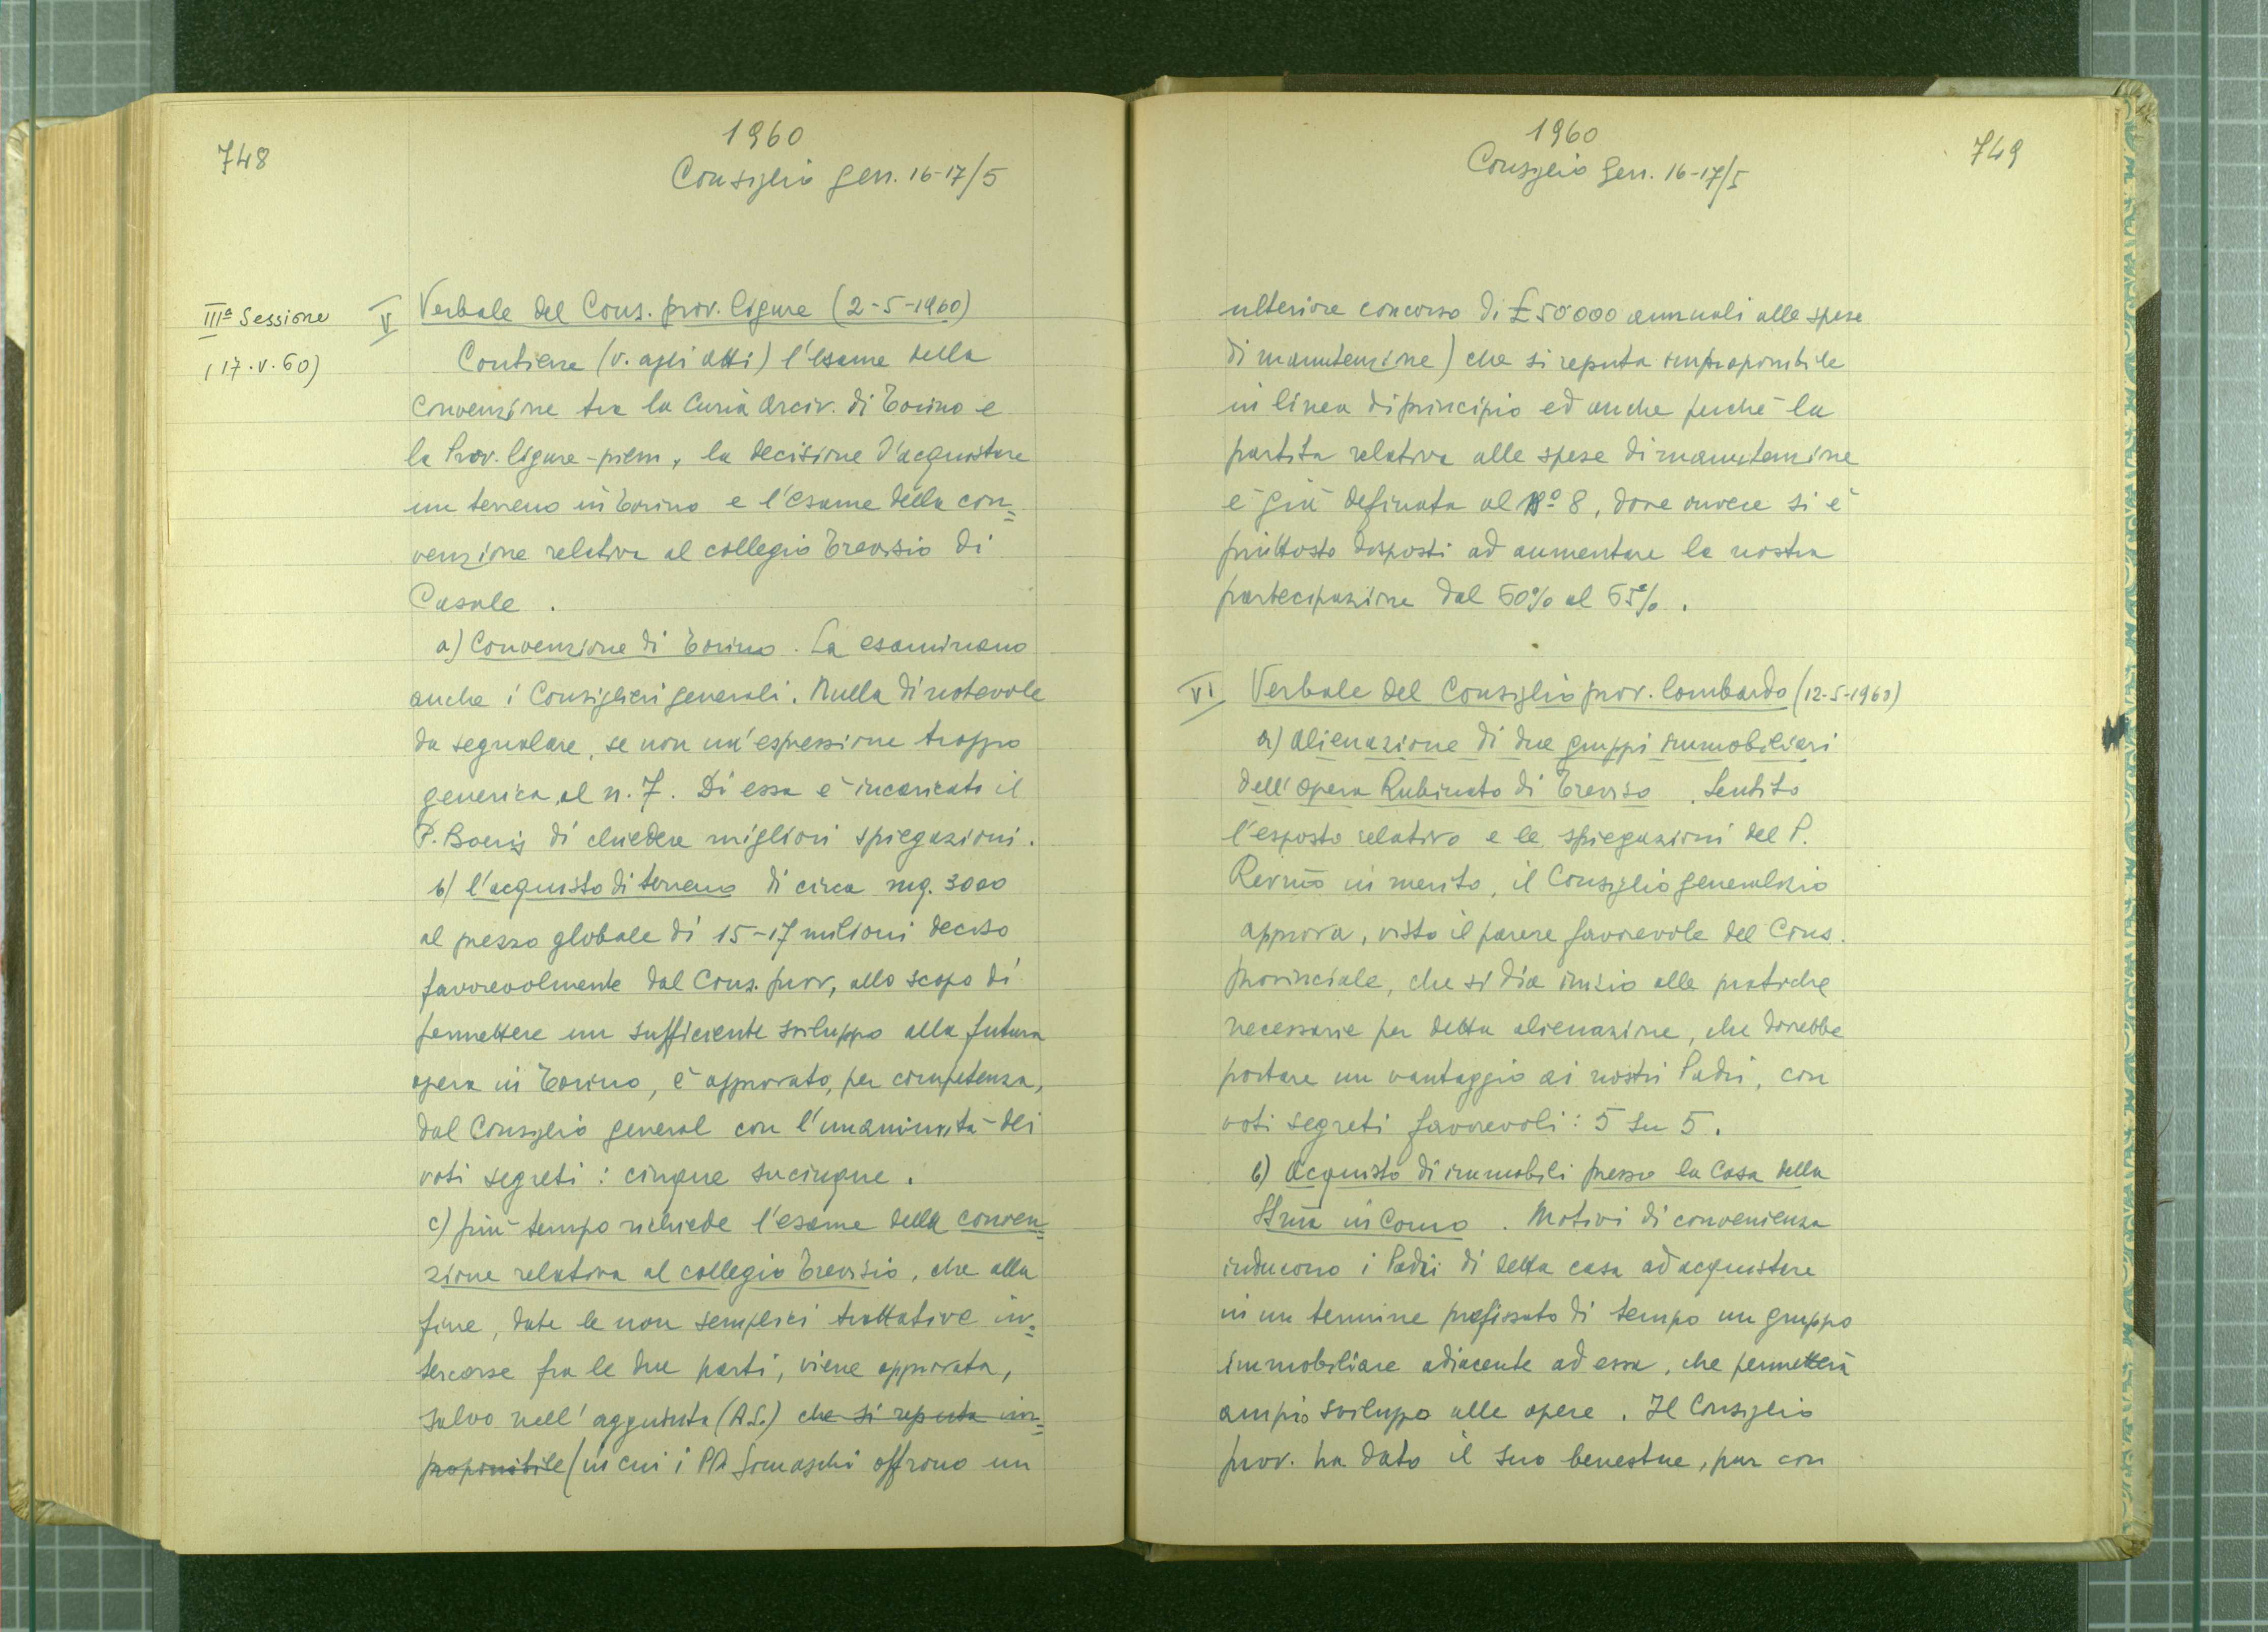 748
1960
Consiglio gen. 16-17/5
IIIª Sessione
(17.V.60)
V Verbale del Cons. prov. ligure (2-5-1960)
Contiene (v. agli atti) l'esame della
convenzione tra la Curia Arciv. di Torino e
la Prov. ligure-piem, la decisione d'acquistare
un terreno in Torino e l'esame della con=
venzione relativa al collegio Trevisio di
Casale.
a) Convenzione di Torino. La esaminano
anche i Consiglieri generali. Nulla di notevole
da segnalare, se non un'espressione troppo
generica, al n. 7. Di essa è incaricato il
P. Boeris di chiedere migliori spiegazioni.
b) l'acquisto di terreno di circa mq. 3000
al prezzo globale di 15-17 milioni deciso
favorevolmente dal Cons. prov, allo scopo di
permettere un sufficiente sviluppo alla futura
opera in Torino, è approvato, per competenza,
dal Consiglio general con l'unanimità dei
voti segreti: cinque su cinque.
c) più tempo richiede l'esame della conven=
zione relativa al collegio Trevisio, che alla
fine, date le non semplici trattative in=
tercorse fra le due parti, viene approvata,
salvo nell'aggiunta (A.S.) che si reputa im=
proponibile (in cui i PP. Somaschi offrono un
1960
Consiglio Gen. 16-17/5
749
ulteriore concorso di £ 50000 annuali alle spese
di manutenzione) che si reputa improponibile
in linea di principio ed anche perché la
partita relativa alle spese di manutenzione
è già definata al Nº 8, dove invece si è
piuttosto disposti ad aumentare la nostra
partecipazione dal 60% al 65%.
VI Verbale del Consiglio prov. lombardo (12-5-1960)
a) alienazione di due gruppi immobiliari
dell'opera Rubinato di Treviso. Sentito
l'esposto relativo e le spiegazioni del P.
Rev̅mo in merito, il Consiglio generalizio
approva, visto il parere favorevole del Cons.
provinciale, che si dia inizio alle pratiche
necessarie per detta alienazione, che dovrebbe
portare un vantaggio ai nostri Padri, con
voti segreti favorevoli: 5 su 5.
b) acquisto di immobili presso la Casa della
SS̅ma in Como. Motivi di convenienza
inducono i Padri di detta casa ad acquistare
in un termine prefissato di tempo un gruppo
immobiliare adiacente ad essa, che permetterà
ampio sviluppo alle opere. Il Consiglio
prov. ha dato il suo benestare, pur con